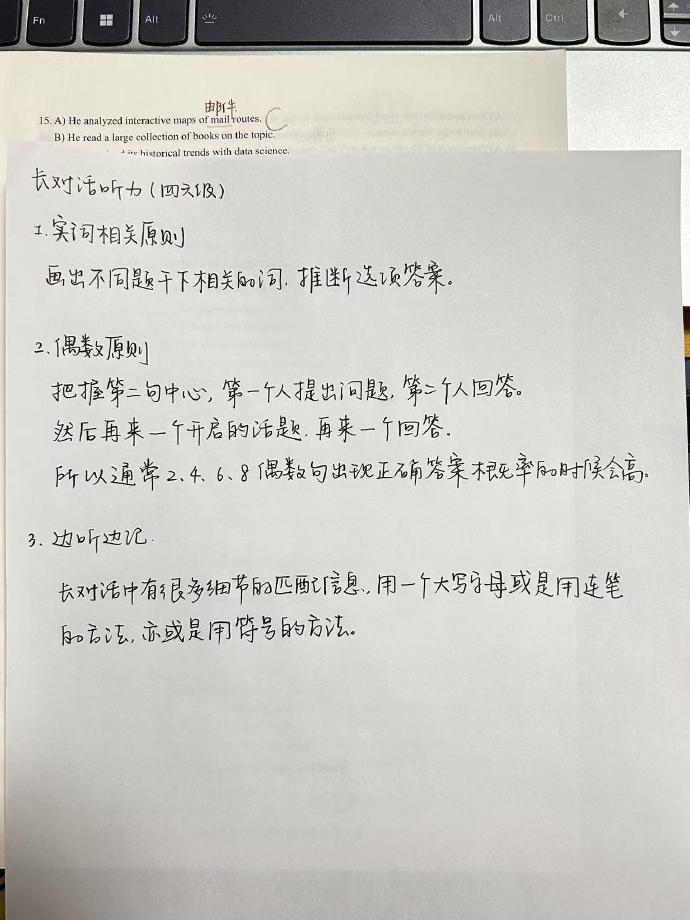 Fn
Alt
Alt
Ctrl
邮件
15. A) He analyzed interactive maps of mail routes. C
B) He read a large collection of books on the topic.
its historical trends with data science.
长对话听力(四六级)
1.实词相关原则
画出不同题干下相关的词,推断选项答案。
2.偶数原则
把握第二句中心,第一个人提出问题,第二个人回答。
然后再来一个开启的话题,再来一个回答.
所以通常2.4.6.8偶数句出现正确答案概率的时候会高。
3.边听边记.
长对话中有很多细节的匹配信息,用一个大写字母或是用连笔
的方法,亦或是用符号的方法。